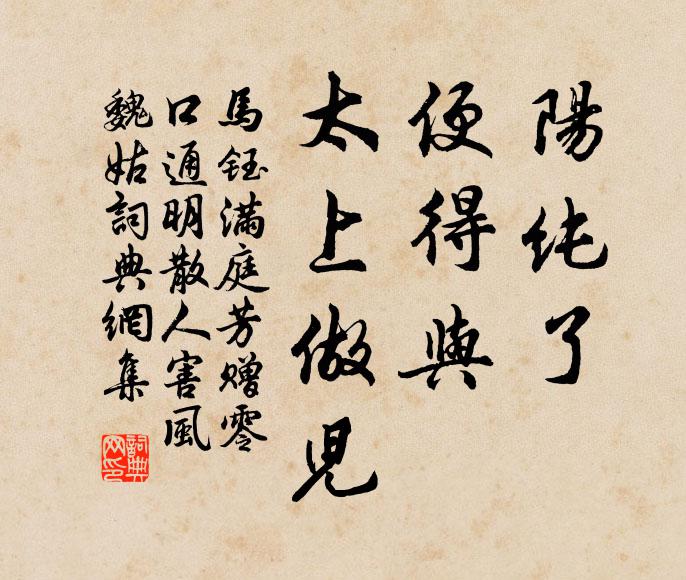 陽純了
便得與
太上做兒
馬鈺滿庭芳贈零
口通明散人害風
魏姑詞典網集
詞典网印